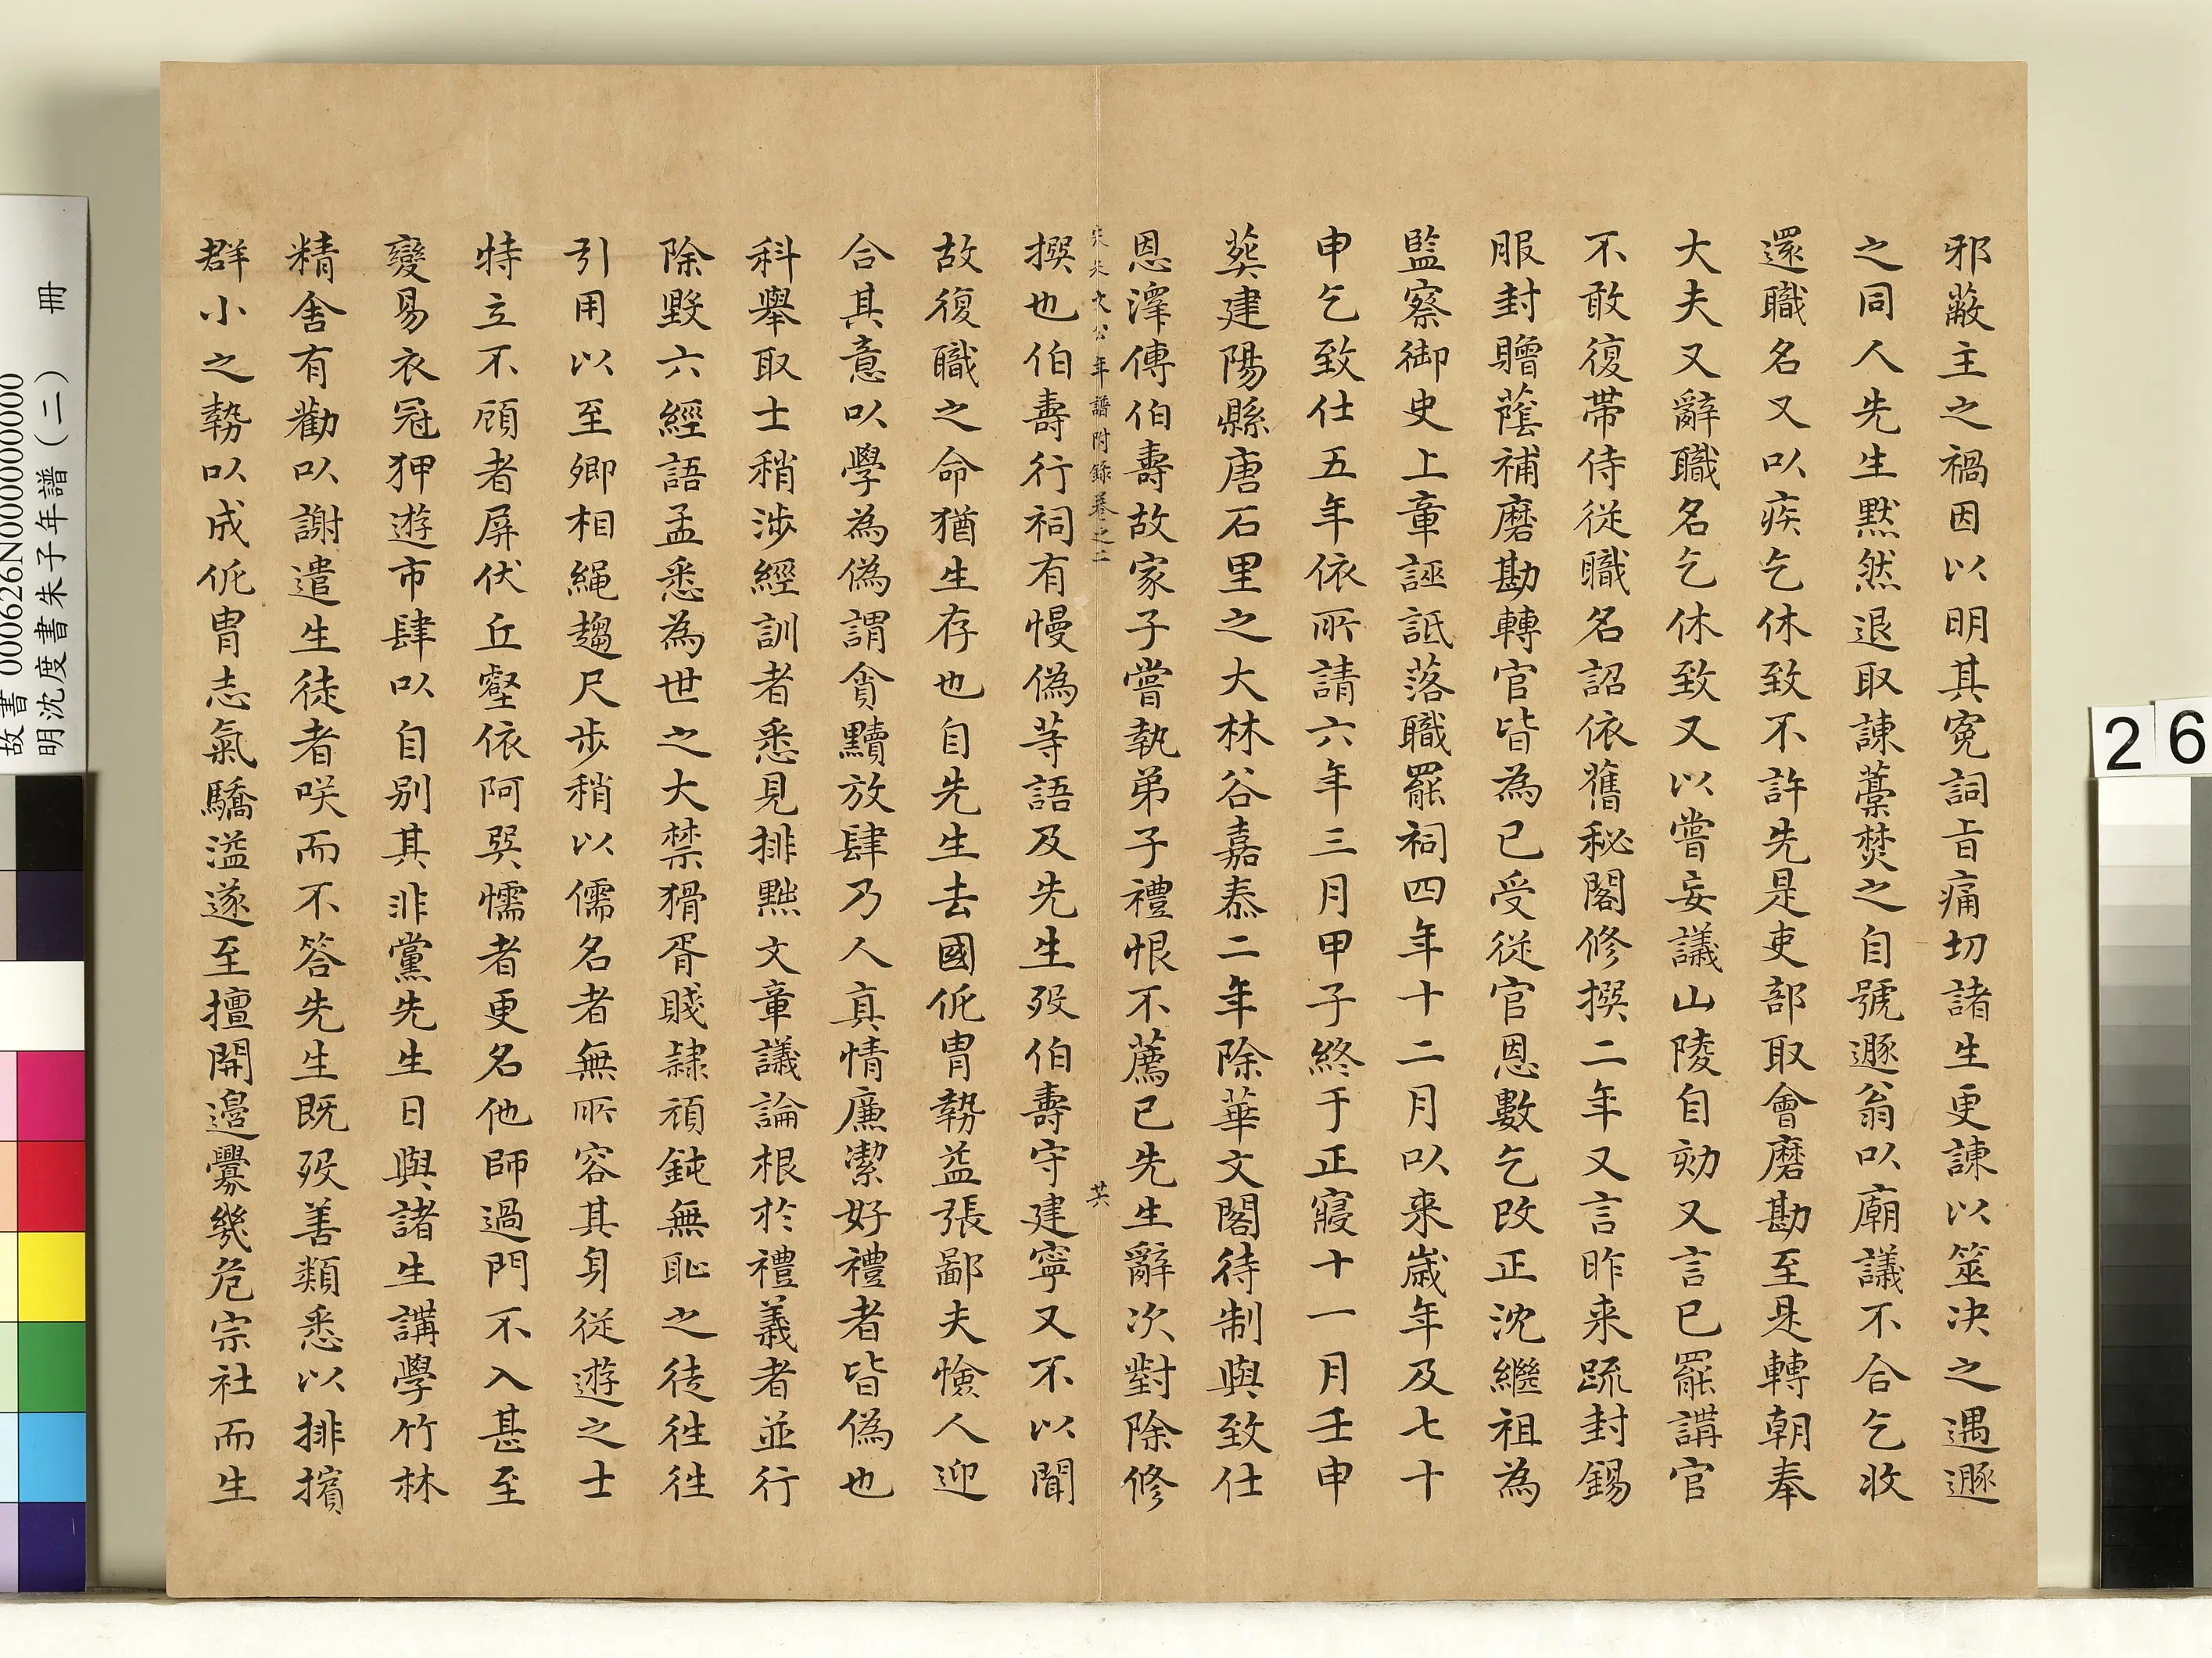 邪蔽主之禍因以明其寃詞㫖痛切諸生更諌以筮决之遇遯
之同人先生黙然退取諌藁焚之自號遯翁以廟議不合乞收
還職名又以疾乞休致不許先是吏部取會磨勘至是轉朝奉
大夫又辭職名乞休致又以嘗妄議山陵自劾又言已罷講官
不敢復帶侍從職名詔依舊秘閣修撰二年又言昨来䟽封錫
服封贈䕃補磨勘轉官皆為已受從官恩數乞改正沈繼祖為
監察御史上章誣詆落職罷祠四年十二月以来歲年及七十
申乞致仕五年依所請六年三月甲子終于正寢十一月壬申
葬建陽縣唐石里之大林谷嘉泰二年除華文閣待制與致仕
恩澤傅伯壽故家子嘗執弟子禮恨不薦已先生辭次對除修
宋朱文公年譜附錄卷之二
其
撰也伯壽行祠有慢偽等語及先生殁伯壽守建寧又不以聞
故復職之命猶生存也自先生去國侂胄勢益張鄙夫憸人迎
合其意以學為偽謂貪黷放肆乃人真情廉潔好禮者皆偽也
科舉取士稍涉經訓者悉見排黜文章議論根於禮義者並行
除毀六經語孟悉為世之大禁猾胥賤隷頑鈍無恥之徒往往
引用以至卿相繩趨尺步稍以儒名者無所容其身從遊之士
特立不顧者屏伏丘壑依阿巽懦者更名他師過門不入甚至
變易衣冠狎遊市肆以自别其非黨先生日與諸生講學竹林
精舍有勸以謝遣生徒者咲而不答先生既殁善類悉以排擯
群小之勢以成侂胄志氣驕溢遂至擅開邉釁幾危宗社而生
故書 000626N000000000
明沈度書朱子年譜(二) 冊
26